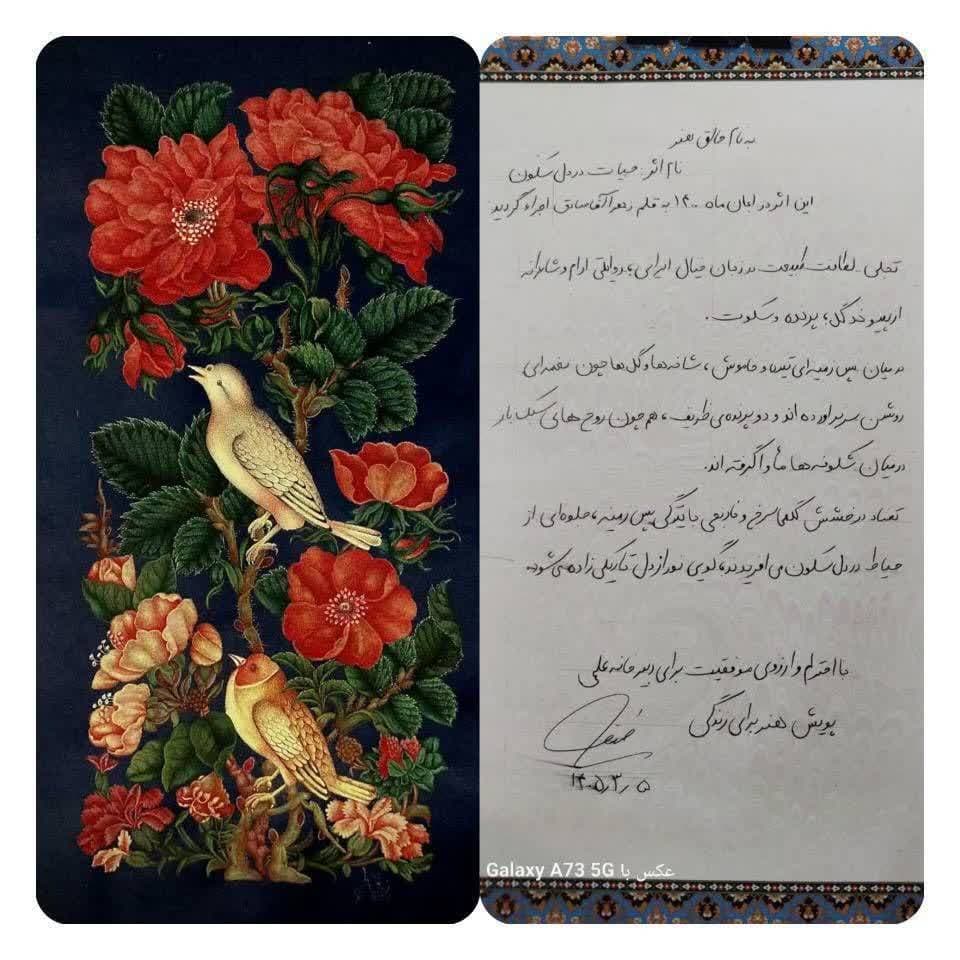 به نام خالق هنر
نام اثر: حیات در دل سکون
این اثر در ابان ماه ۱۴۰۰ به قلم زهرا آقاصادق اجراء گردید
تجلی لطافت طبیعت در زبان خیال ایرانی، روایتی ارام و شاعرانه
از پیوند گل، پرنده و سکوت.
در میان پس زمینه‌ای تیره و خاموش، شاخه‌ها و گل‌ها چون نغمه‌ای
روشن سر براورده اند و دو پرنده‌ی ظریف، هم چون روح های سبک بار
در میان شکوفه ها ماوا گرفته اند.
تضاد درخشش گلهای سرخ و نارنجی با تیرگی پس زمینه، جلوه‌ای از
حیاط در دل سکون می افریدند، گویی نور از دل تاریکی زاده می شود.
با احترام و ارزوی موفقیت برای دبیرخانه علمی
پویش هنر برای زندگی
۱۴۰۵٫۳٫۵
عکس با Galaxy A73 5G